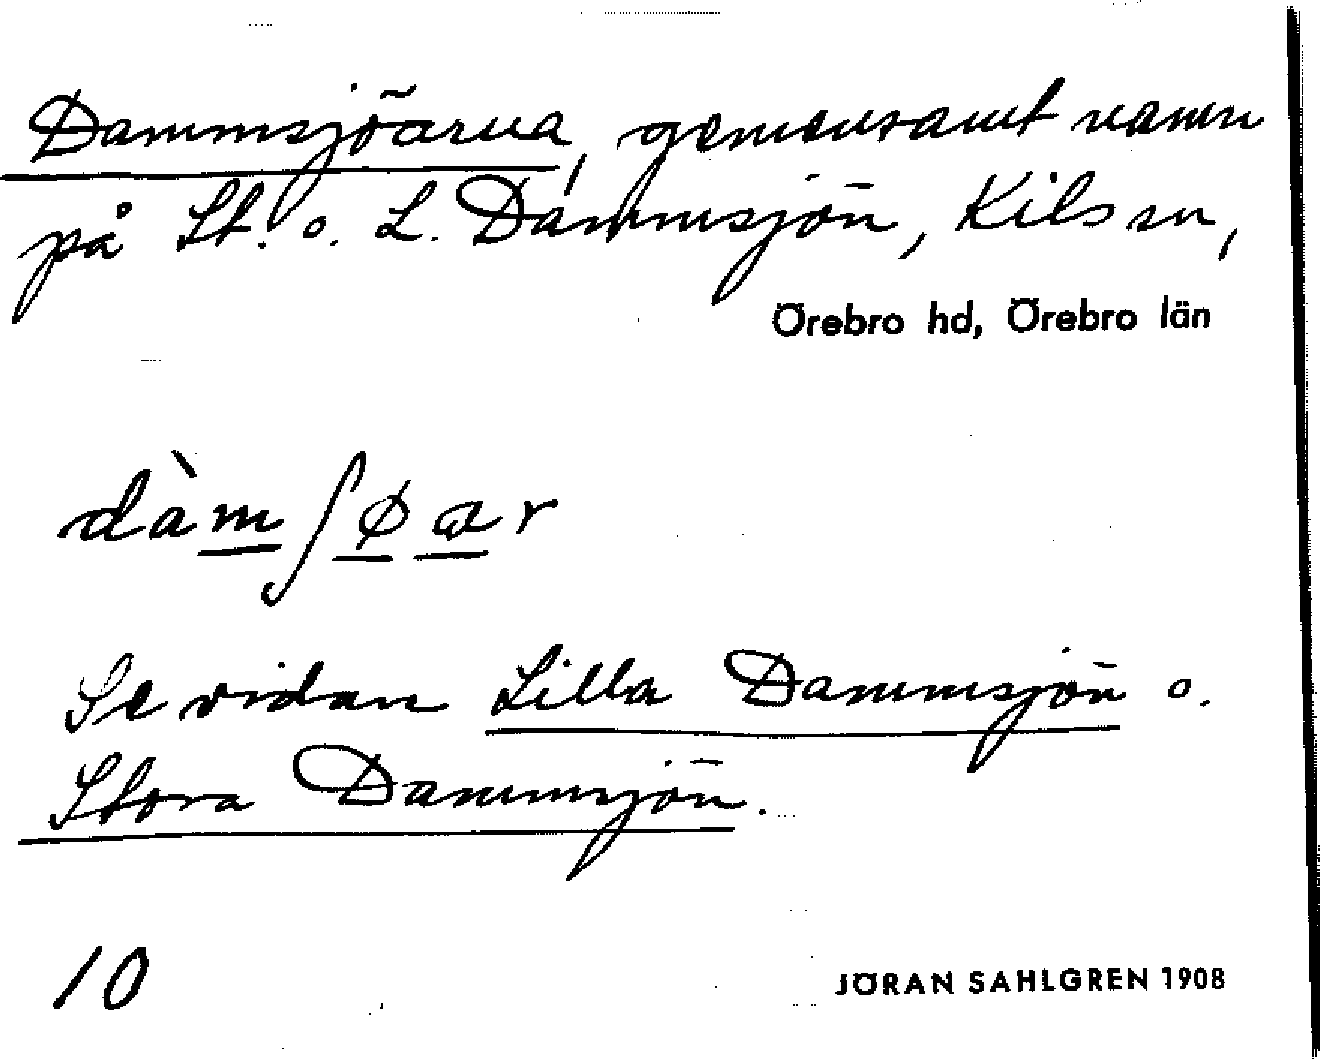 Dammsjöarna, gemensamt namn
på St. o. L. Dammsjön, Kils sn,
Örebro hd, Örebro län
dàmʃøar
Se vidare Lilla Dammsjön o.
Stora Dammsjön.
10
JÖRAN SAHLGREN 1908